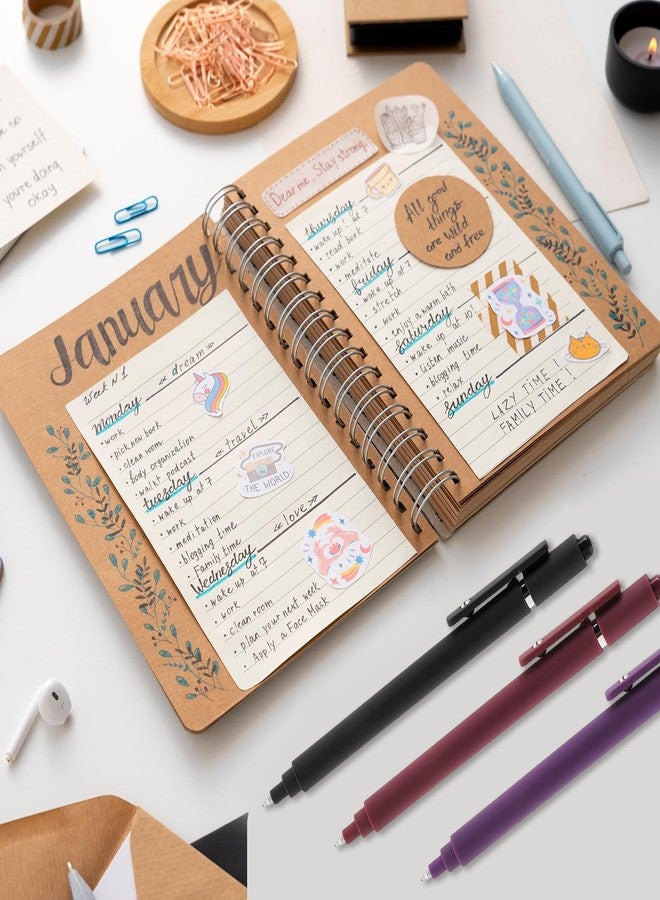 so
n yourself
you're doing
okay
January
Week N 1
monday
• work
• pick new book
• clean room
• body organization
• walk+ podcast
<< dream >>
tuesday
• wake up at 7
• work
• meditation
• blogging time
• Family time
<< travel >>
EXPLORE
THE WORLD
Wednesday
• wake up at 7
• work
• clean room
• plan your next week
• Apply a Face Mask
<< love >>
Dear me, Stay strong!
thursday
• wake up! at 7
• read book
• work
• meditate
All good
things
are wild
and free
friday
• wake up at 7
• stretch
• work
• enjoy a warm bath
Saturday
• wake up at 10
• listen music
• blogging time
• relax
Sunday
LAZY TIME!
FAMILY TIME!